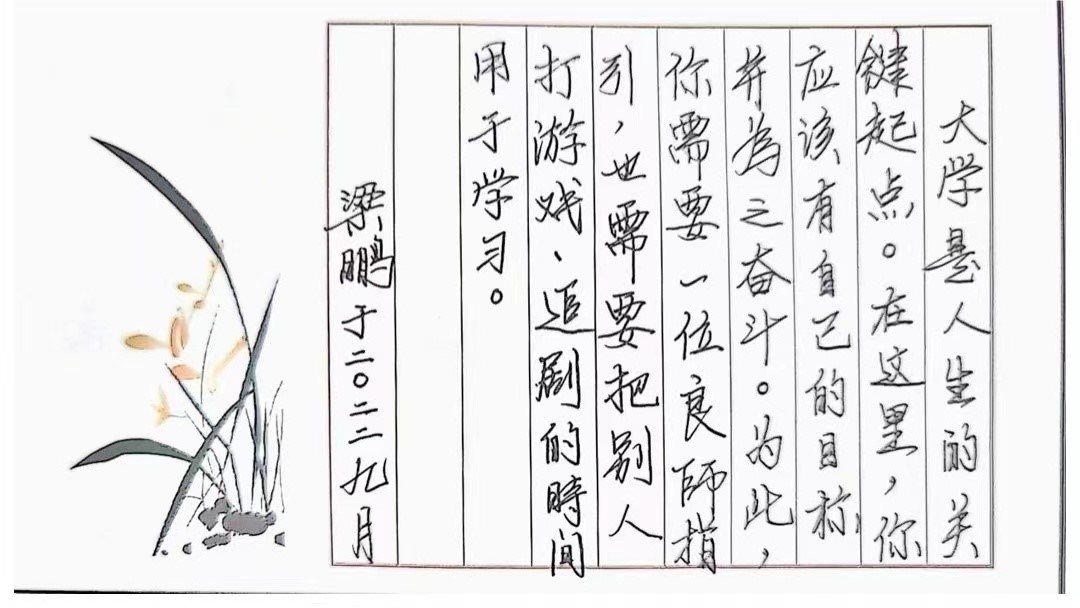 大学是人生的关
键起点。在这里，你
应该有自己的目标，
并為之奋斗。为此，
你需要一位良師指
引，也需要把别人
打游戏、追剧的時间
用于学习。
梁鹏于二〇二二九月